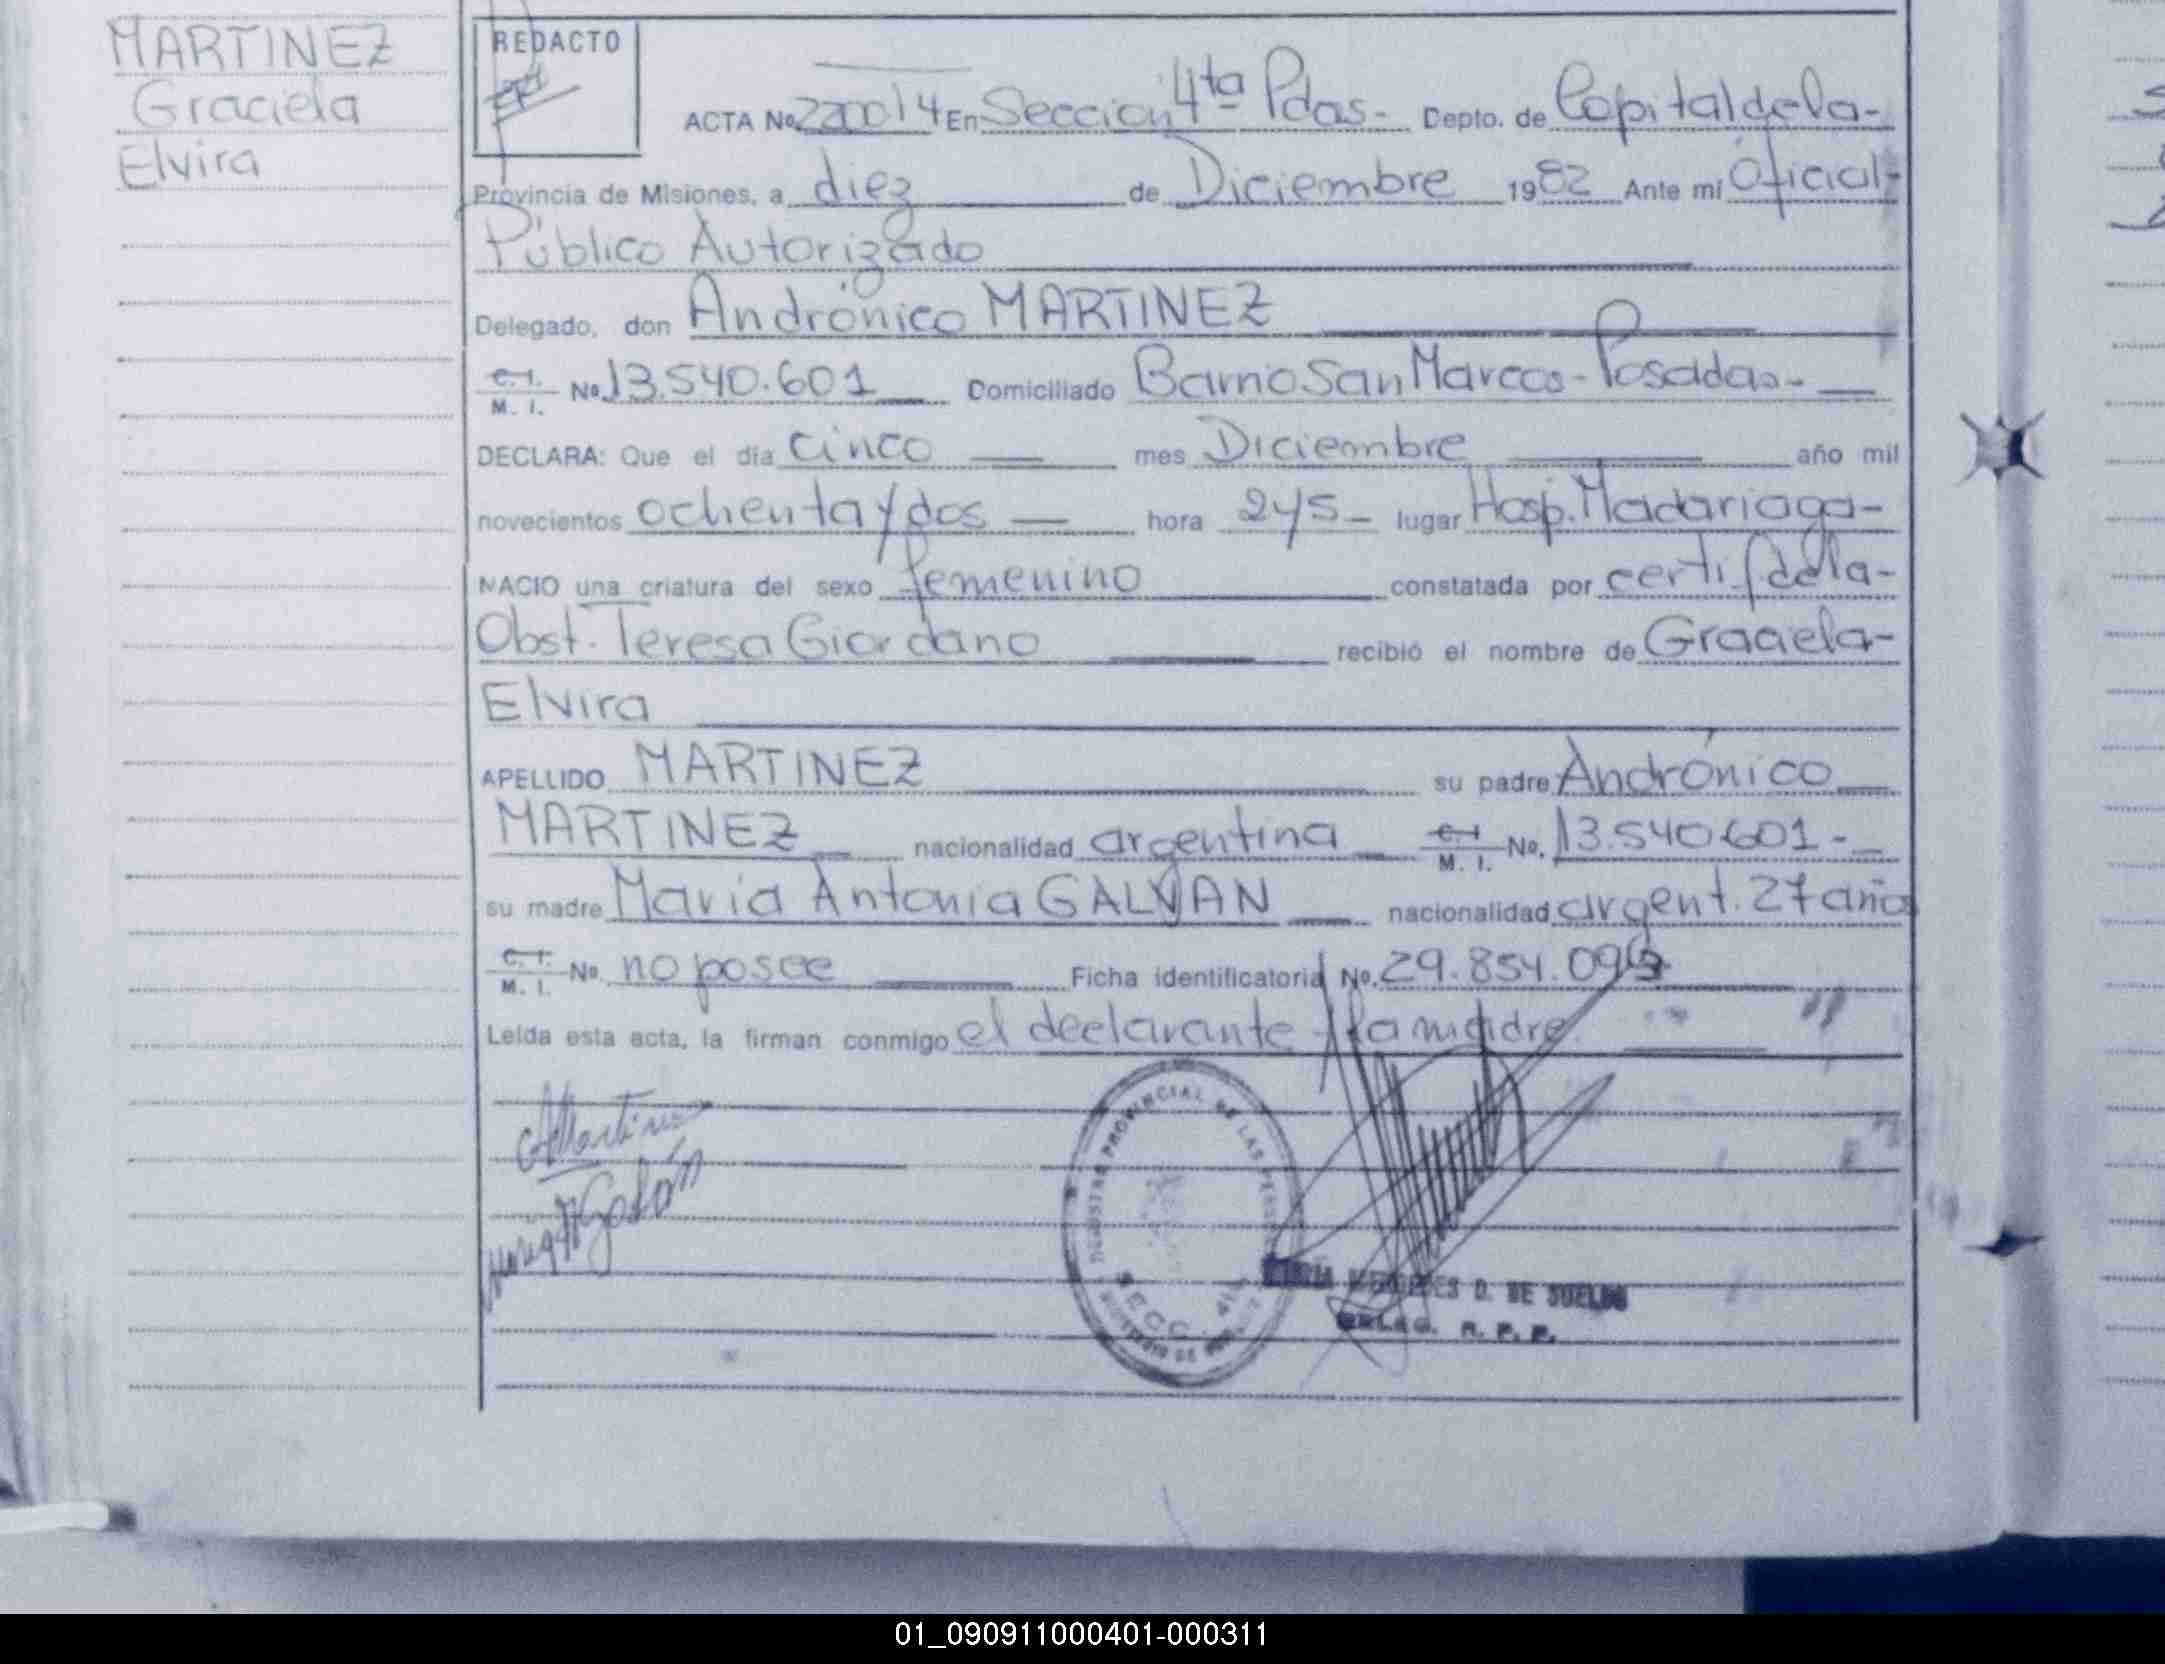 MARTINEZ
Graciela
Elvira
REDACTO
ACTA No 220014 En Sección 4ta Pdas- Depto. de Capital de la-
Provincia de Misiones, a diez de Diciembre 1982 Ante mí Oficial-
Público Autorizado
Delegado, don Andrónico MARTINEZ
C. I. M. I. No. 13.540.601 Domiciliado Barrio San Marcos- Posadas-
DECLARA: Que el día cinco mes Diciembre año mil
novecientos ochenta y dos hora 2y5- lugar Hosp. Madariaga-
NACIO una criatura del sexo femenino constatada por certif de la-
Obst. Teresa Giordano recibió el nombre de Graciela-
Elvira
APELLIDO MARTINEZ su padre Andrónico
MARTINEZ nacionalidad argentina C. I. M. I. No. 13.540.601-
su madre Maria Antonia GALVAN nacionalidad argent. 27 años
C. I. M. I. No. no posee Ficha identificatoria No. 29.854.09
Leída esta acta, la firman conmigo el declarante y la madre.
AMartinez
Maria A Galván
REGISTRO PROVINCIAL DE LAS PERSONAS
SECC. 4ta
MARIA MERCEDES D. DE SUELDO
DELEG. R. P. P.
01_090911000401-000311